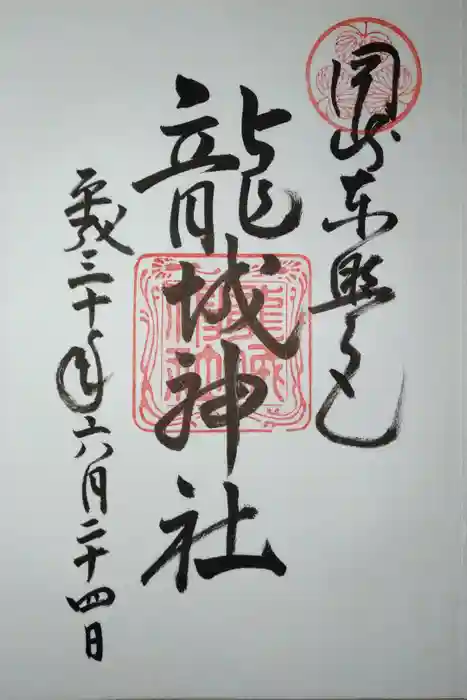 岡崎東照宮
龍城神社
平成三十年六月二十四日